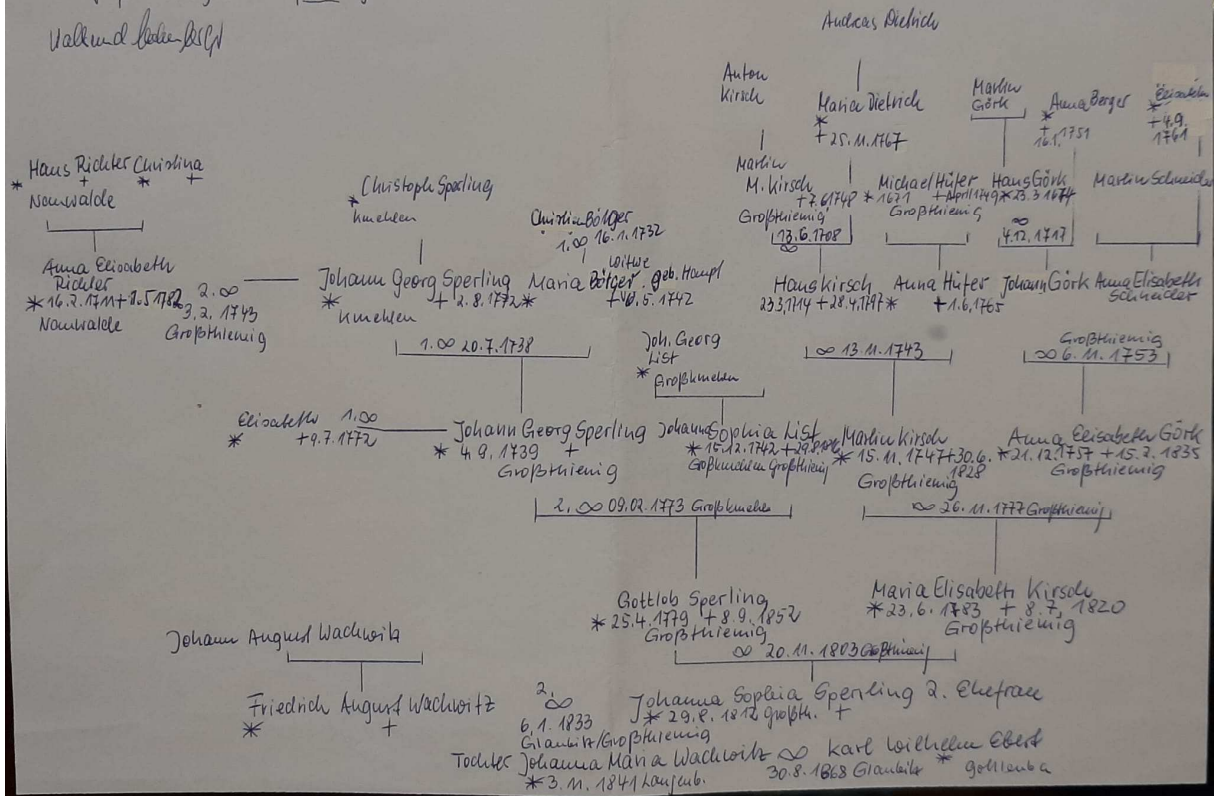 Andreas Dietrich
Anton
Kirsch
Maria Dietrich
*
+ 25.11.1767
Martin
Görk
Anna Berger
*
+
16.1.1751
Elisabeth
*
+ 4.9.
1761
Hans Richter Christina
* + * +
Nauwalde
Christoph Sperling
*
Kmehlen
Christian Böttger
1. ∞ 16.1.1732
Martin
M. Kirsch
+ 7.6.1748
Großthiemig
13.6.1708
∞
Michael Hüfer
* 1671 + April 1749
Großthiemig
Hans Görk
* 23.3.1674
∞
4.12.1717
Martin Schneider
Anna Elisabeth
Richter
* 16.2.1711 + 1.5.1782
Nauwalde
2. ∞
3.2.1743
Großthiemig
Johann Georg Sperling
* + 2.8.1772
Kmehlen
Witwe
Maria Böttger geb. Hampl
* + 10.5.1742
Hans Kirsch
23.3.1714 + 28.4.1797
Anna Hüfer
* + 1.6.1765
Johann Görk
Anna Elisabeth
Schneider
1. ∞ 20.7.1738
Joh. Georg
List
*
Großkmehlen
∞ 13.11.1743
Großthiemig
∞ 6.11.1753
Elisabeth 1. ∞
* + 9.7.1772
Johann Georg Sperling
* 4.9.1739 +
Großthiemig
Johanna Sophia List
* 15.12.1742 + 29.8.
Großkmehlen Großthiemig
Martin Kirsch
* 15.11.1747 + 30.6.
1828
Großthiemig
Anna Elisabeth Görk
* 21.12.1757 + 15.2.1835
Großthiemig
2. ∞ 09.02.1773 Großkmehlen
∞ 26.11.1777 Großthiemig
Gottlob Sperling
* 25.4.1779 + 8.9.1852
Großthiemig
Maria Elisabeth Kirsch
* 23.6.1783 + 8.7.1820
Großthiemig
∞ 20.11.1803 Großthiemig
Johann August Wachwitz
Friedrich August Wachwitz
* +
2.
∞
6.1.1833
Glaubitz/Großthiemig
Johanna Sophia Sperling 2. Ehefrau
* 29.8.1812 Großth. +
Tochter Johanna Maria Wachwitz ∞ Karl Wilhelm Ebert
* 3.11.1841 Langenb. 30.8.1868 Glaubitz * Gohlenba